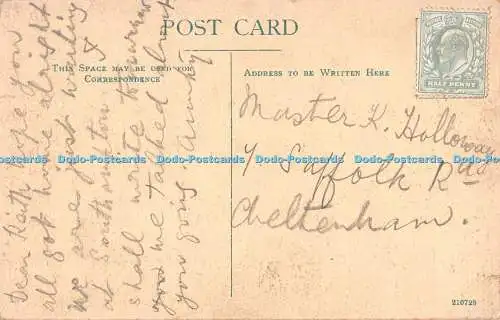 POST CARD
THIS SPACE MAY BE USED FOR
CORRESPONDENCE
ADDRESS TO BE WRITTEN HERE
HALF PENNY
Dear Keith hope you
all got home alright
we are just waiting
at Southampton &
shall write tomorrow
we talked about
you going
Master K. Holloway
7 Suffolk Rd
Cheltenham.
210729
www.DodoPostcards.com www.DodoPostcards.com www.DodoPostcards.com
www.DodoPostcards.com www.DodoPostcards.com www.DodoPostcards.com